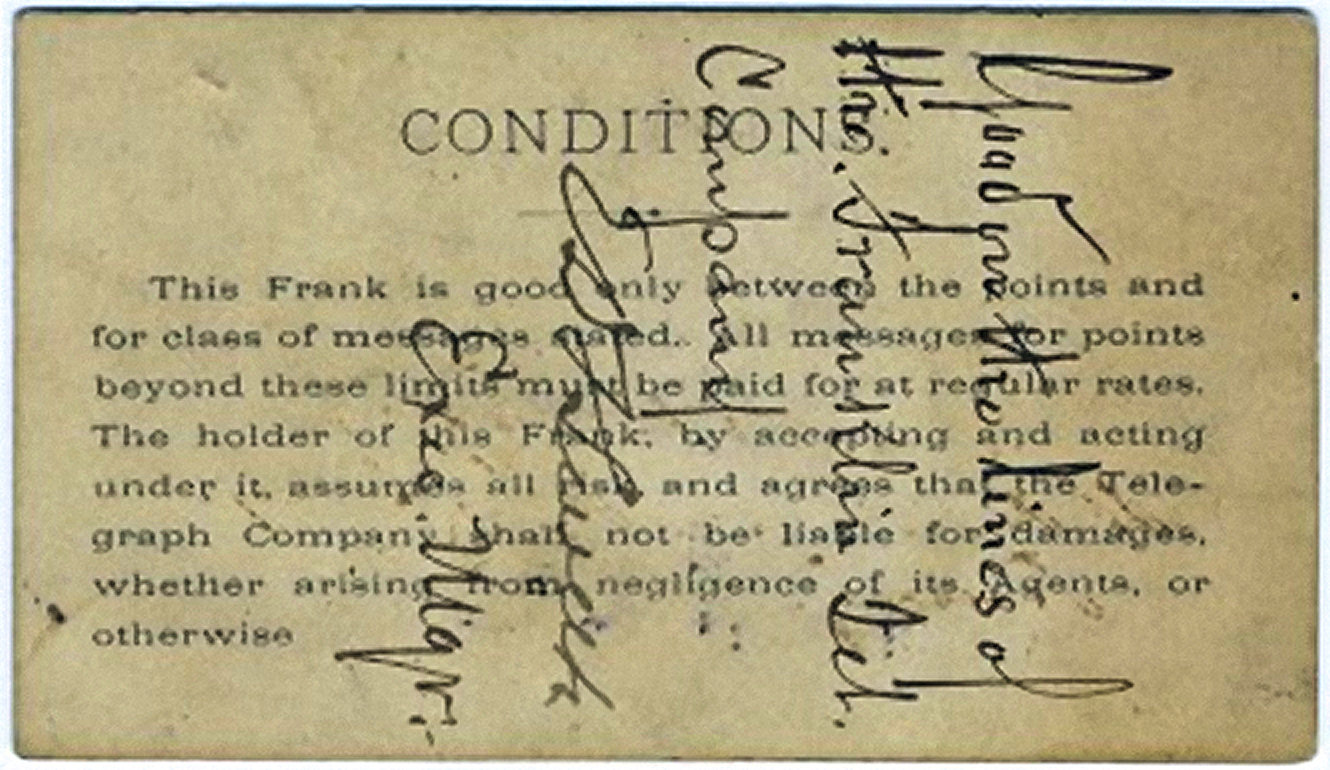 CONDITIONS.
This Frank is good only between the points and
for class of messages stated. All messages for points
beyond these limits must be paid for at regular rates.
The holder of this Frank, by accepting and acting
under it, assumes all risk, and agrees that the Tele-
graph Company shall not be liable for damages,
whether arising from negligence of its Agents, or
otherwise
Good on the lines of
the Franklin Tel.
Company
Mgr.